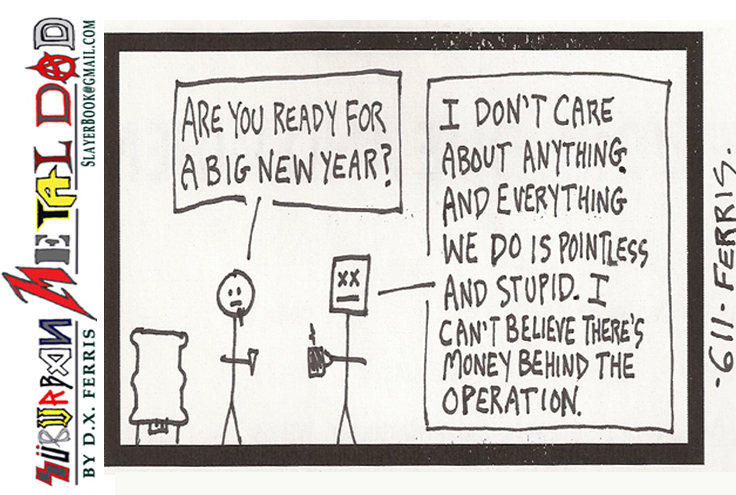 SÜBÜRBAN METAL DAD
BY D.X. FERRIS
SLAYERBOOK@GMAIL.COM
ARE YOU READY FOR
A BIG NEW YEAR?
I DON'T CARE
ABOUT ANYTHING.
AND EVERYTHING
WE DO IS POINTLESS
AND STUPID. I
CAN'T BELIEVE THERE'S
MONEY BEHIND THE
OPERATION.
XX
·611· FERRIS.